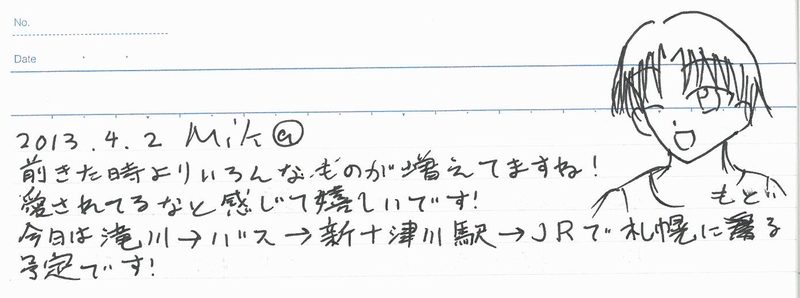 No.
Date
2013.4.2
前きた時よりいろんなものが増えてますね!
愛されてるなと感じて嬉しいです!
もど
今日は滝川→バス→新十津川駅→JRで札幌に る
予定です!